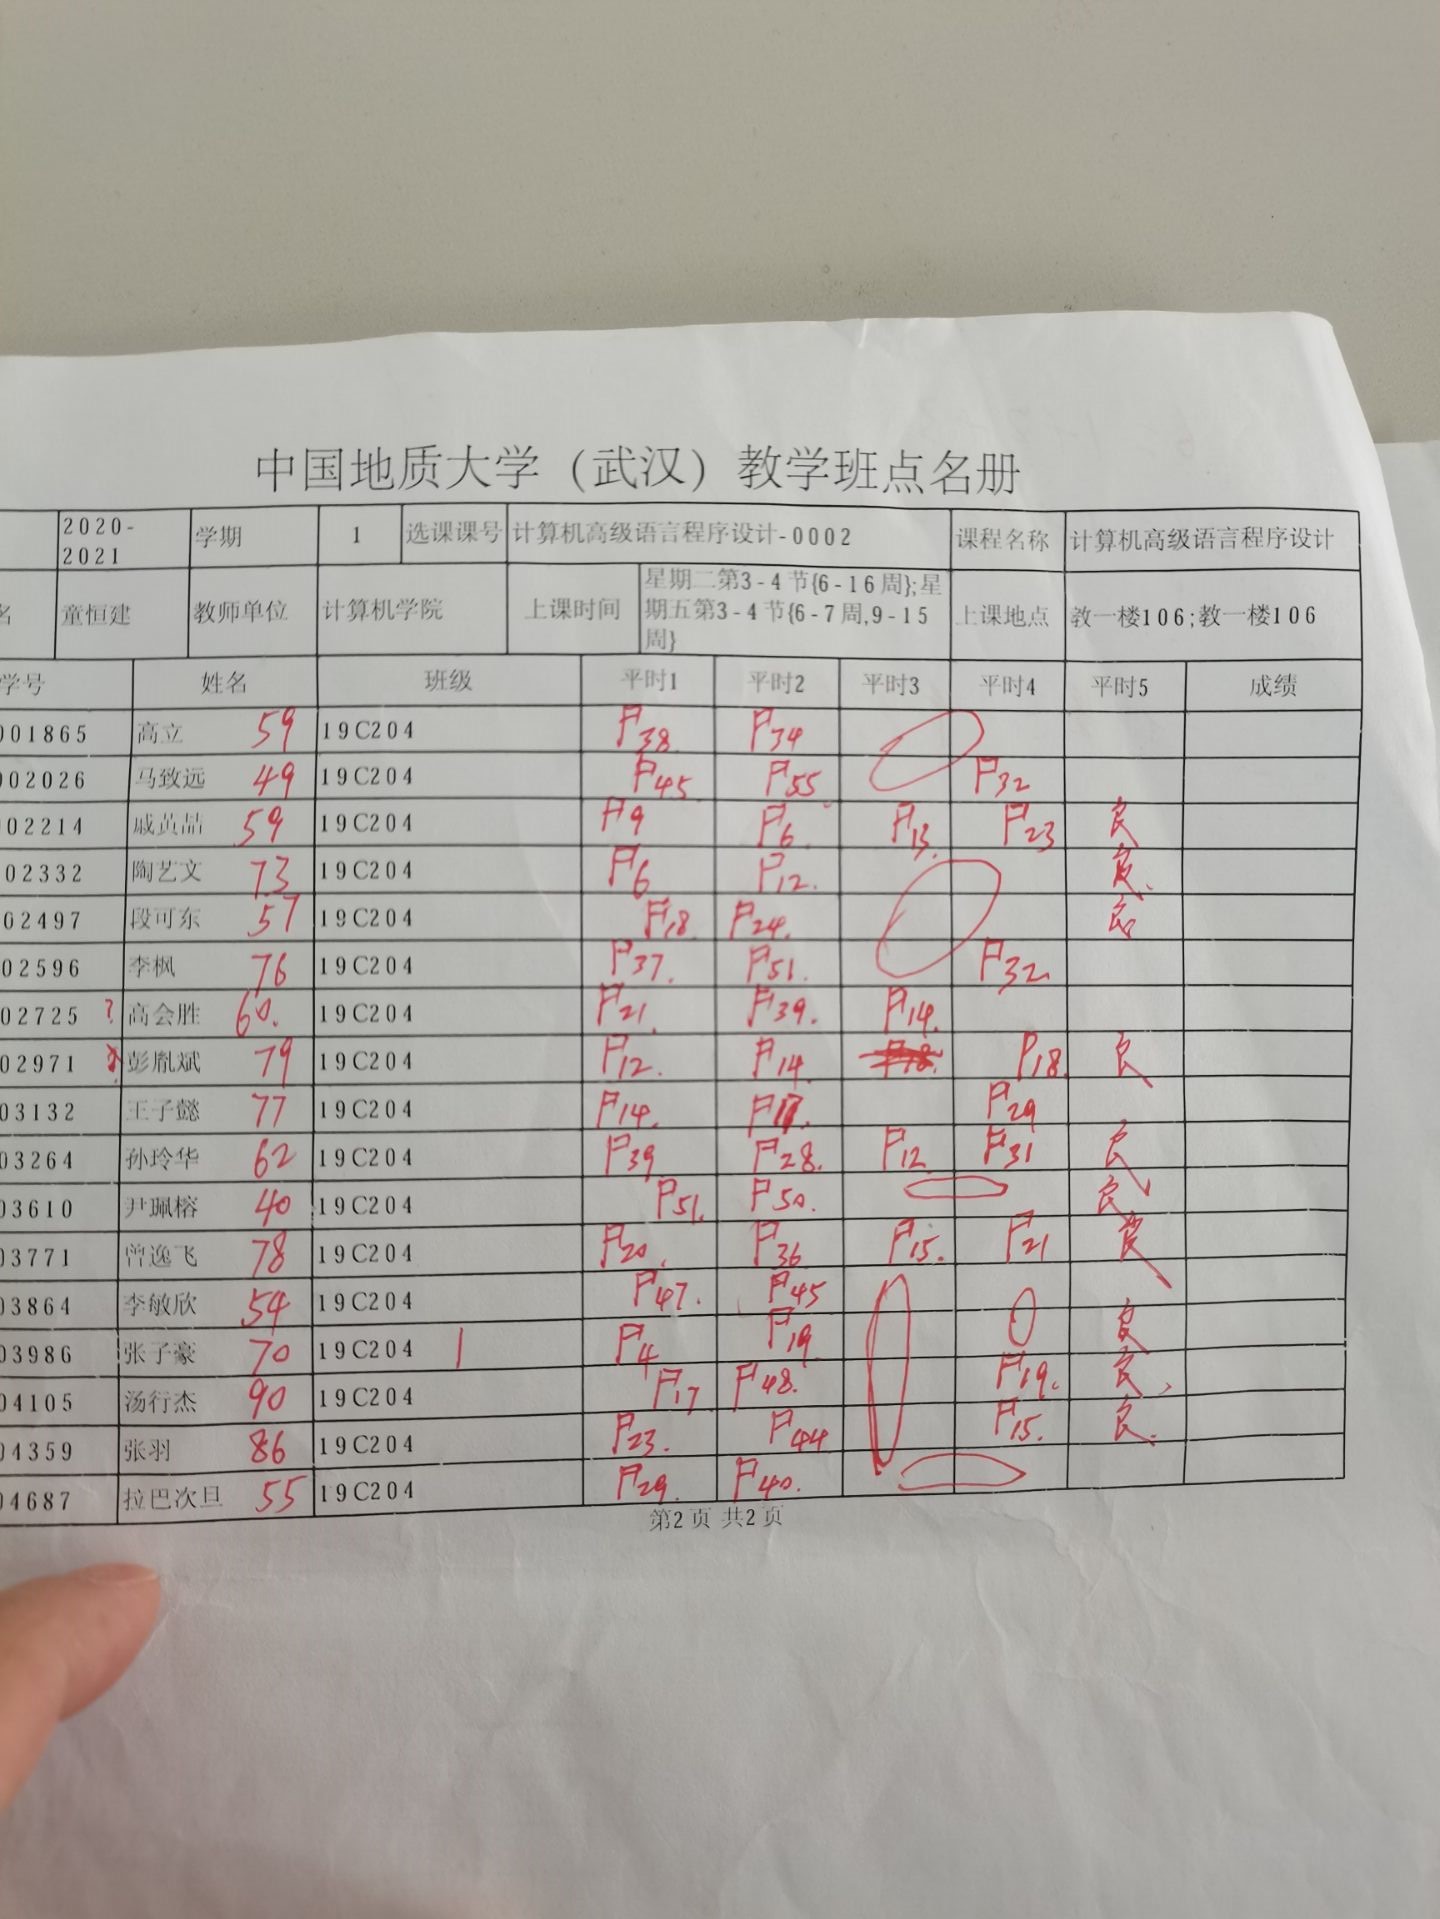 中国地质大学（武汉）教学班点名册
2020-2021 学期 1 选课课号 计算机高级语言程序设计-0002 课程名称 计算机高级语言程序设计
名 童恒建 教师单位 计算机学院 上课时间 星期二第3-4节{6-16周};星期五第3-4节{6-7周,9-15周} 上课地点 教一楼106;教一楼106
学号 姓名 班级 平时1 平时2 平时3 平时4 平时5 成绩
001865 高立 59 19C204 P38 P34
002026 马致远 49 19C204 P45 P55 P32
02214 59 19C204 P9 P6 P13 P23 良
02332 陶艺文 73 19C204 P6 P12 良
02497 段可东 57 19C204 P18 P24 良
02596 李枫 76 19C204 P37 P51 P32
02725 ? 高会胜 60 19C204 P21 P39 P14
02971 彭胤斌 79 19C204 P12 P14 P18 良
03132 王子懿 77 19C204 P14 P29
03264 孙玲华 62 19C204 P39 P28 P12 P31 良
03610 尹珮榕 40 19C204 P51 P50 良
03771 曾逸飞 78 19C204 P20 P36 P15 P21 良
03864 李敏欣 54 19C204 P47 P45
03986 张子豪 70 19C204 P4 P19 良
04105 汤行杰 90 19C204 P17 P48 P19 良
04359 张羽 86 19C204 P23 P44 P15 良
04687 拉巴次旦 55 19C204 P29 P40
第2页 共2页